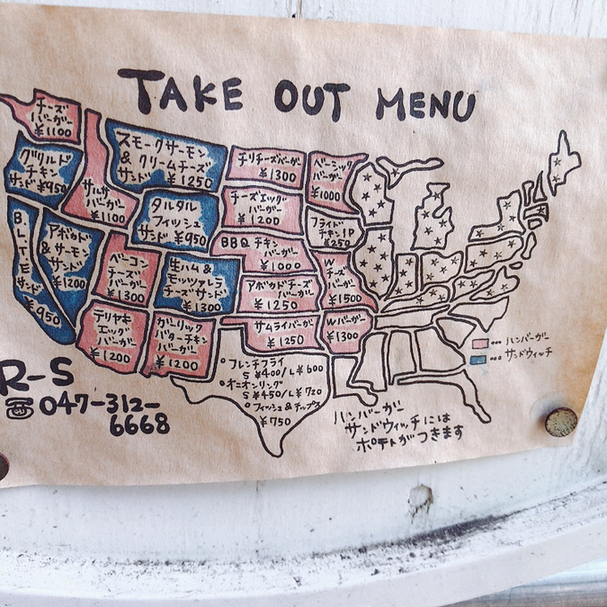 TAKE OUT MENU
チーズ
バーガー
¥1100
グリルド
チキン
サンド ¥950
BLTEサンド
¥950
アボカド
& サーモン
サンド
¥1200
サルサ
バーガー
¥1100
スモークサーモン
& クリームチーズ
サンド ¥1250
タルタル
フィッシュ
サンド ¥950
ベーコン
チーズ
バーガー
¥1300
生ハム &
モッツァレラ
チーズサンド
¥1300
テリヤキ
エッグ
バーガー
¥1200
ガーリック
バターチキン
バーガー
¥1200
チリチーズバーガー
¥1300
チーズエッグ
バーガー
¥1200
BBQチキン
バーガー
¥1000
アボカドチーズ
バーガー
¥1250
サムライバーガー
¥1250
ベーシック
バーガー
¥1000
フライド
チキン1P
¥250
W
チーズ
バーガー
¥1500
Wバーガー
¥1300
○フレンチフライ
S ¥400/L ¥600
○オニオンリング
S ¥450/L ¥720
○フィッシュ&チップス
¥750
R-S
☎047-312-
6668
…ハンバーガー
…サンドウィッチ
ハンバーガー
サンドウィッチには
ポテトがつきます